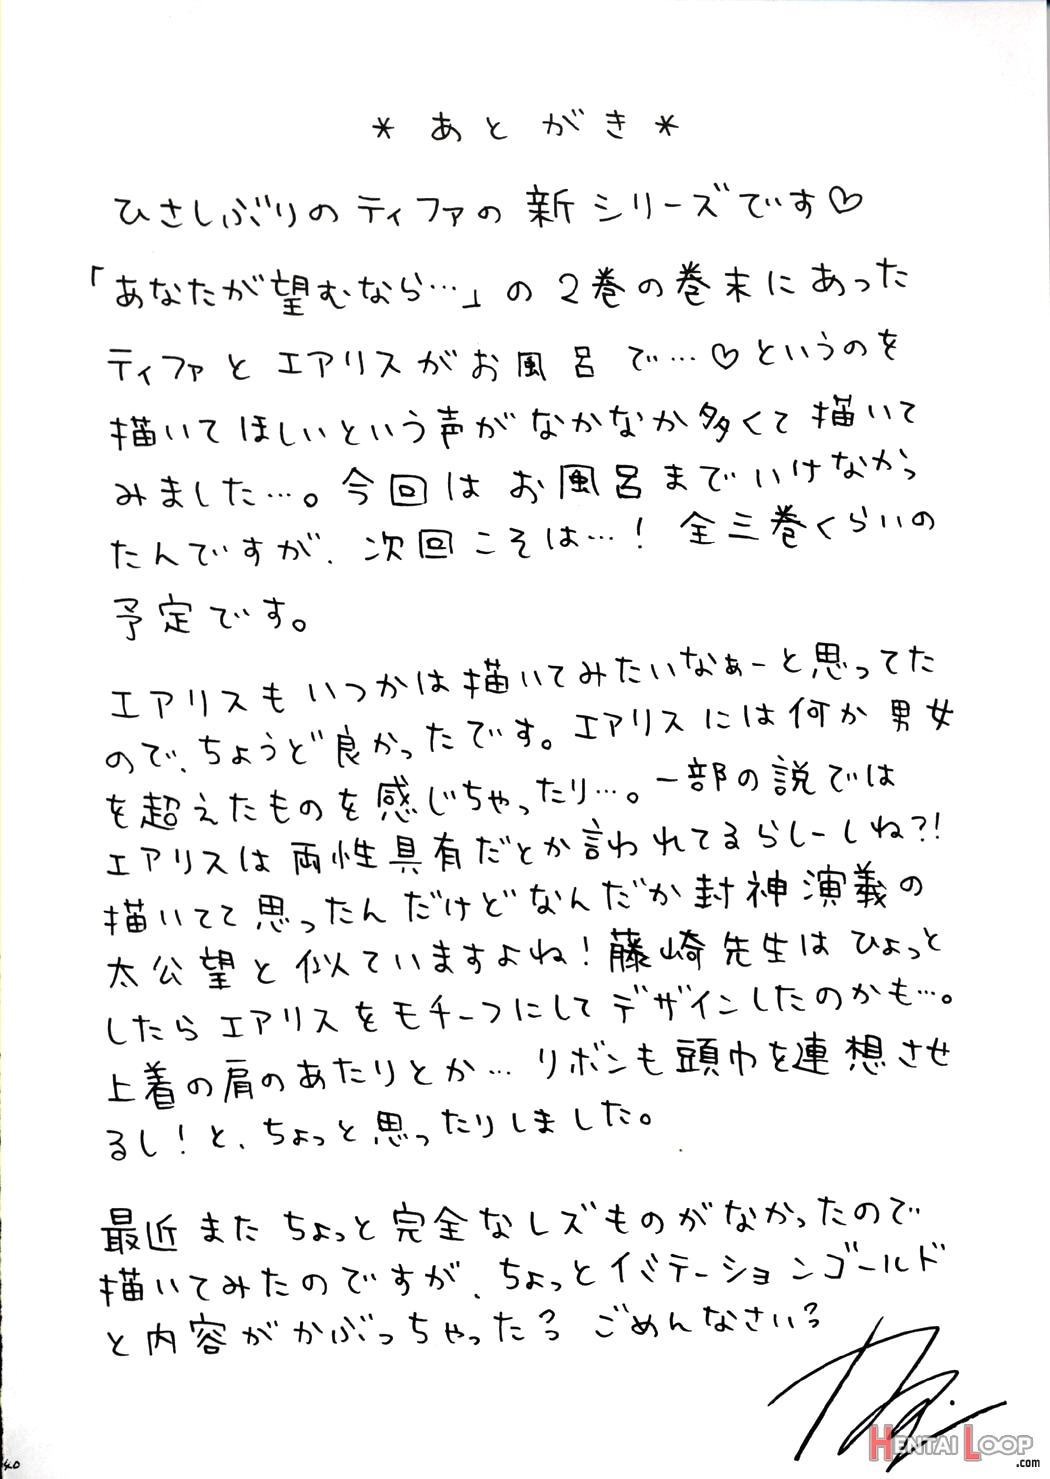 * あとがき *
ひさしぶりのティファの新シリーズです♡
「あなたが望むなら…」の2巻の巻末にあった
ティファとエアリスがお風呂で…♡というのを
描いてほしいという声がなかなか多くて描いて
みました…。今回はお風呂までいけなかっ
たんですが、次回こそは…！全三巻くらいの
予定です。
エアリスもいつかは描いてみたいなぁーと思ってた
ので、ちょうど良かったです。エアリスには何か男女
を超えたものを感じちゃったり…。一部の説では
エアリスは両性具有だとか言われてるらしーしね?!
描いてて思ったんだけどなんだか封神演義の
太公望と似ていますよね！藤崎先生はひょっと
したらエアリスをモチーフにしてデザインしたのかも…。
上着の肩のあたりとか…リボンも頭巾を連想させ
るし！と、ちょっと思ったりしました。
最近またちょっと完全なレズものがなかったので
描いてみたのですが、ちょっとイミテーションゴールド
と内容がかぶっちゃった？ごめんなさい？
HENTAI LOOP
.com
40